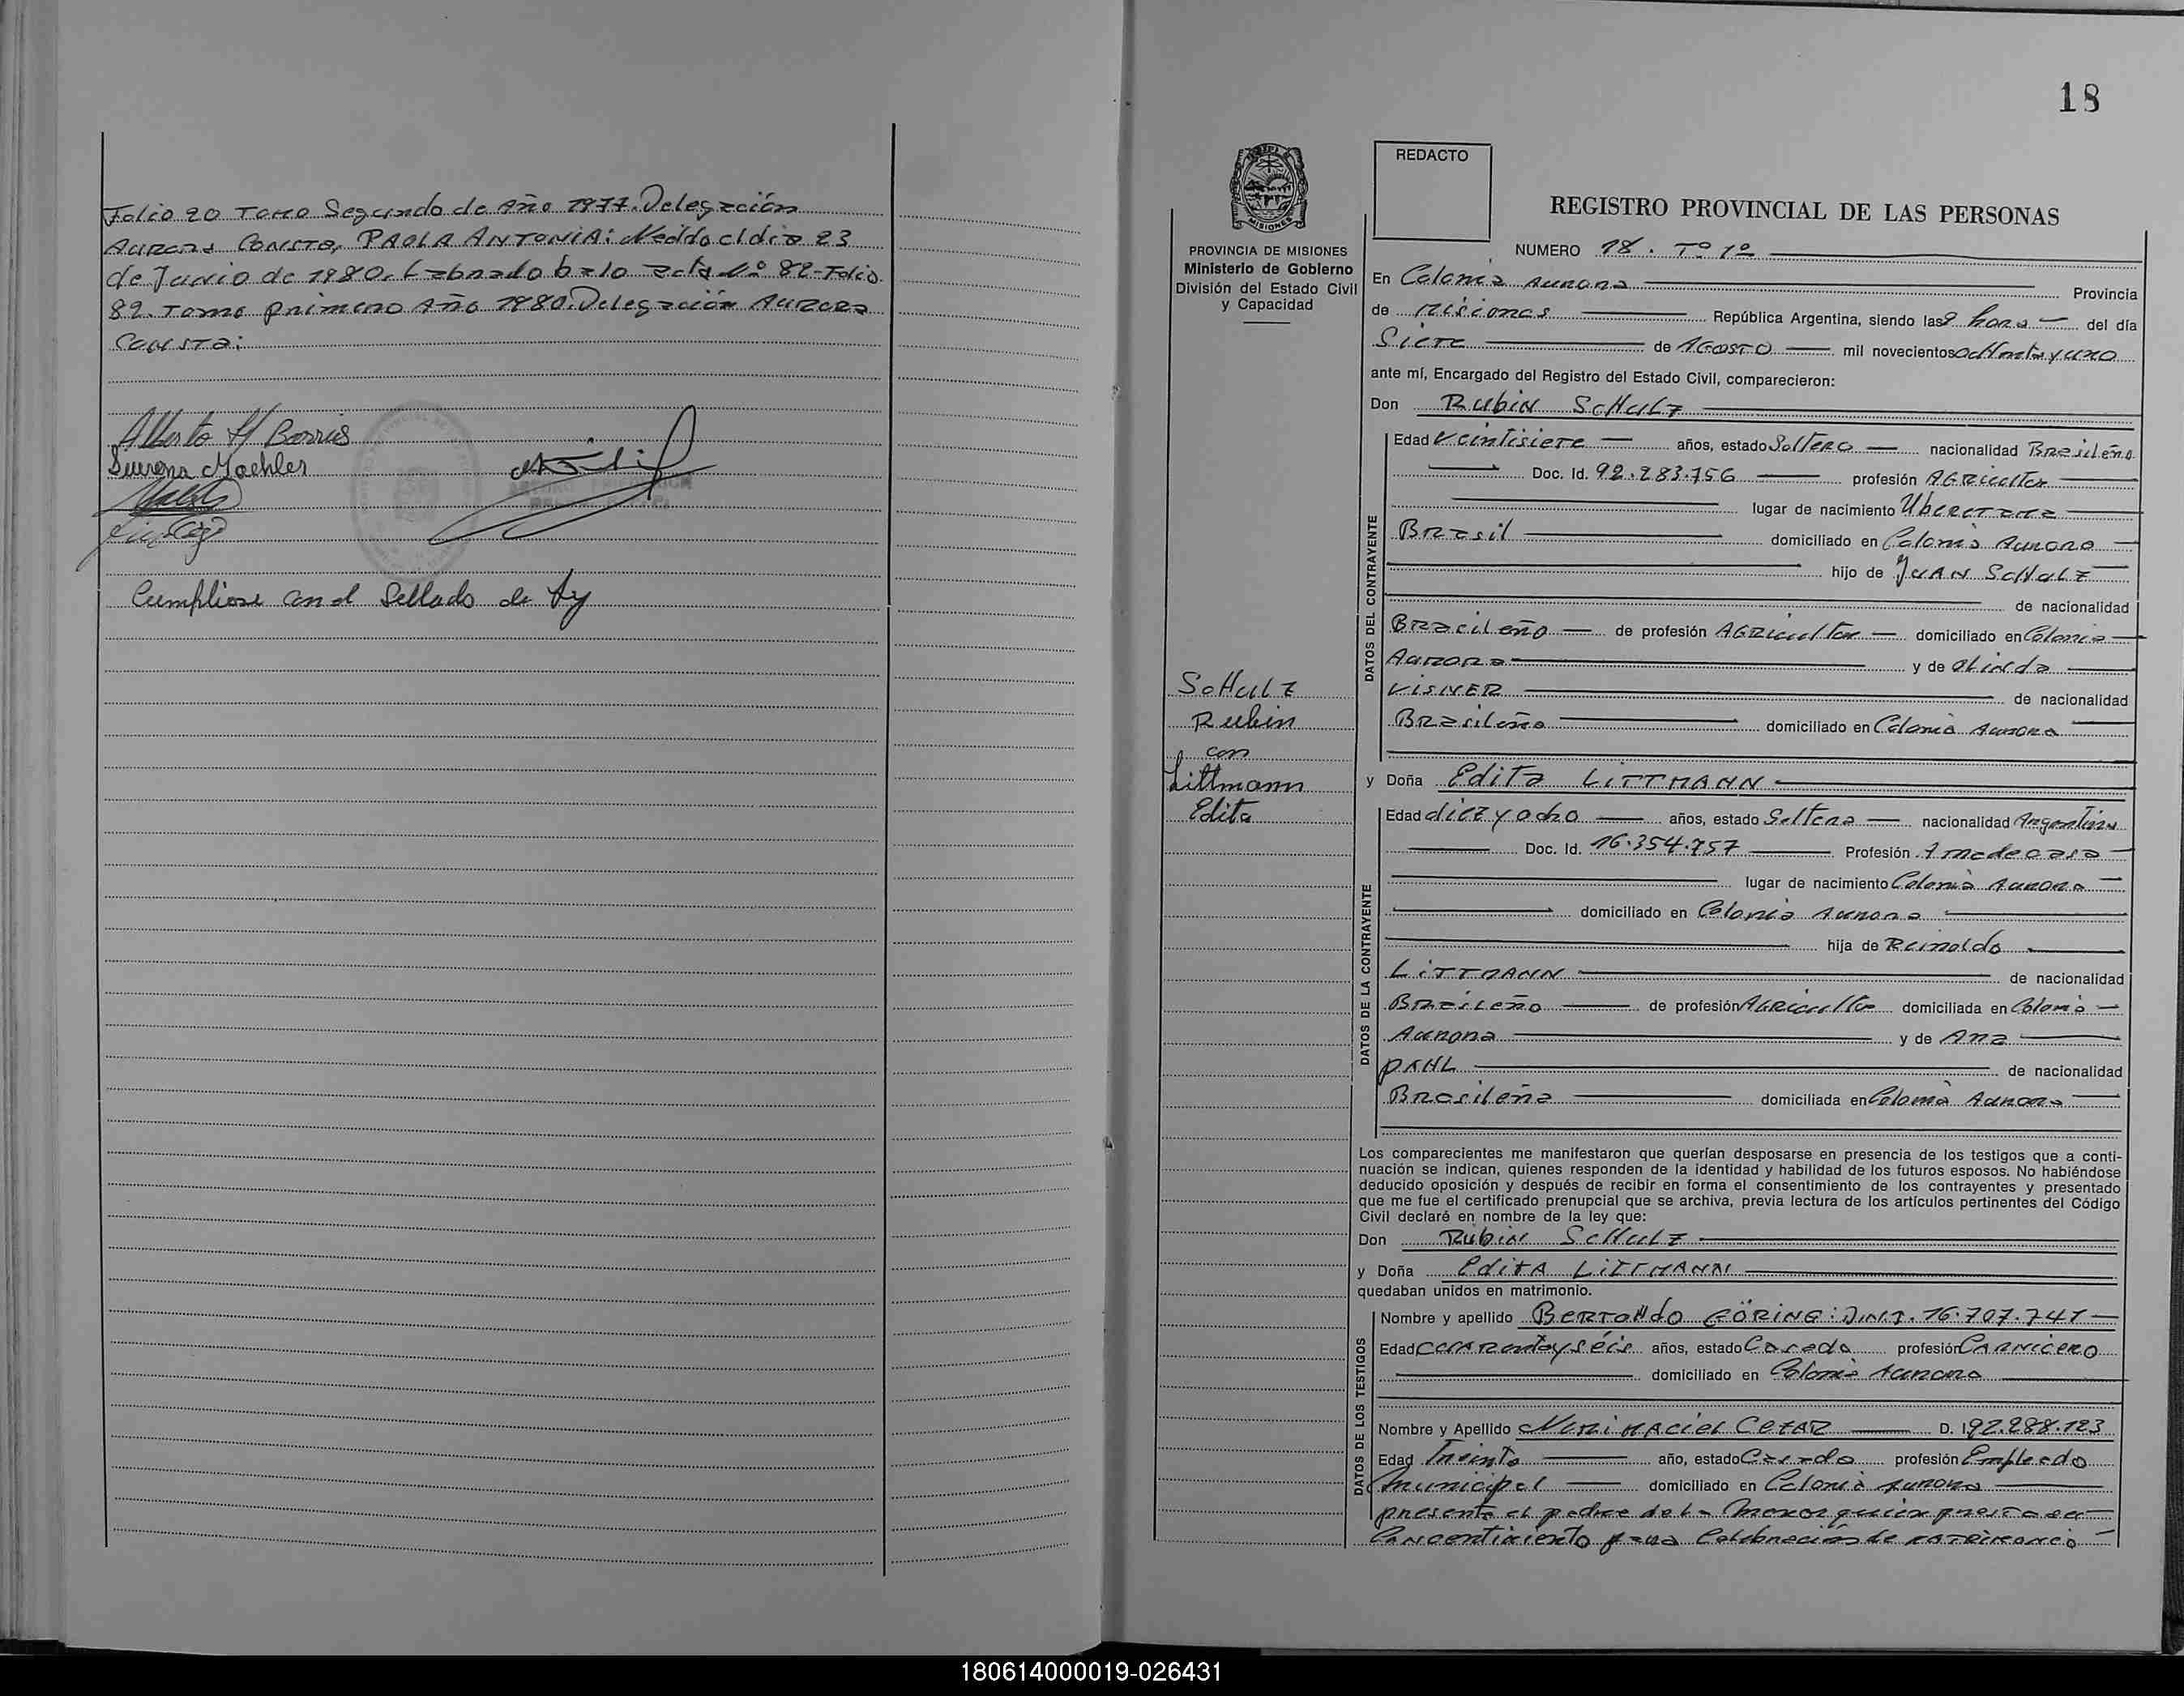 Folio 20 Tomo Segundo de Año 1977. Delegación
Aurora Consta, PAOLA ANTONIA: Nacido el dia 23
de Junio de 1980. Labrado bajo acta Nº 82-Folio
82. Tomo primero Año 1980. Delegación Aurora
Consta:
Alberto H Barrios
Moehler
Cumpliose con el Sellado de Ley
18
REDACTO
REGISTRO PROVINCIAL DE LAS PERSONAS
PROVINCIA DE MISIONES
Ministerio de Gobierno
División del Estado Civil
y Capacidad
NUMERO 18. Tº 1º
En Colonia Aurora Provincia
de Misiones República Argentina, siendo las 9 horas del día
Siete de Agosto mil novecientos ochenta y uno
ante mí, Encargado del Registro del Estado Civil, comparecieron:
Don Rubin Schulz
DATOS DEL CONTRAYENTE
Edad Veintisiete años, estado Soltero nacionalidad Brasileño
Doc. Id. 92.283.756 profesión Agricultor
lugar de nacimiento
Brasil domiciliado en Colonia Aurora
hijo de Juan Schulz
de nacionalidad
Brasileño de profesión Agricultor domiciliado en Colonia
Aurora y de Olinda
Visner de nacionalidad
Brasileña domiciliado en Colonia Aurora
Schulz
Rubin
con
Littmann
Edita
y Doña Edita LITTMANN
DATOS DE LA CONTRAYENTE
Edad diez y ocho años, estado Soltera nacionalidad Argentina
Doc. Id. 16.354.757 Profesión Ama de casa
lugar de nacimiento Colonia Aurora
domiciliado en Colonia Aurora
hija de Reinoldo
LITTMANN de nacionalidad
Brasileño de profesión Agricultor domiciliada en Colonia
Aurora y de Ana
PAHL de nacionalidad
Brasileña domiciliada en Colonia Aurora
Los comparecientes me manifestaron que querían desposarse en presencia de los testigos que a conti-
nuación se indican, quienes responden de la identidad y habilidad de los futuros esposos. No habiéndose
deducido oposición y después de recibir en forma el consentimiento de los contrayentes y presentado
que me fue el certificado prenupcial que se archiva, previa lectura de los artículos pertinentes del Código
Civil declaré en nombre de la ley que:
Don Rubin Schulz
y Doña Edita LITTMANN
quedaban unidos en matrimonio.
DATOS DE LOS TESTIGOS
Nombre y apellido BERTOLDO GÖRING: D.N.I. 16.707.741
Edad cuarenta y séis años, estado Casado profesión Carnicero
domiciliado en Colonia Aurora
Nombre y Apellido Neri Maciel Cezar D. I. 92.288.123
Edad Treinta año, estado Casado profesión Empleado
Municipal domiciliado en Colonia Aurora
presente el padre de la menor quien presta su
Concentimiento para Celebración de matrimonio
180614000019-026431